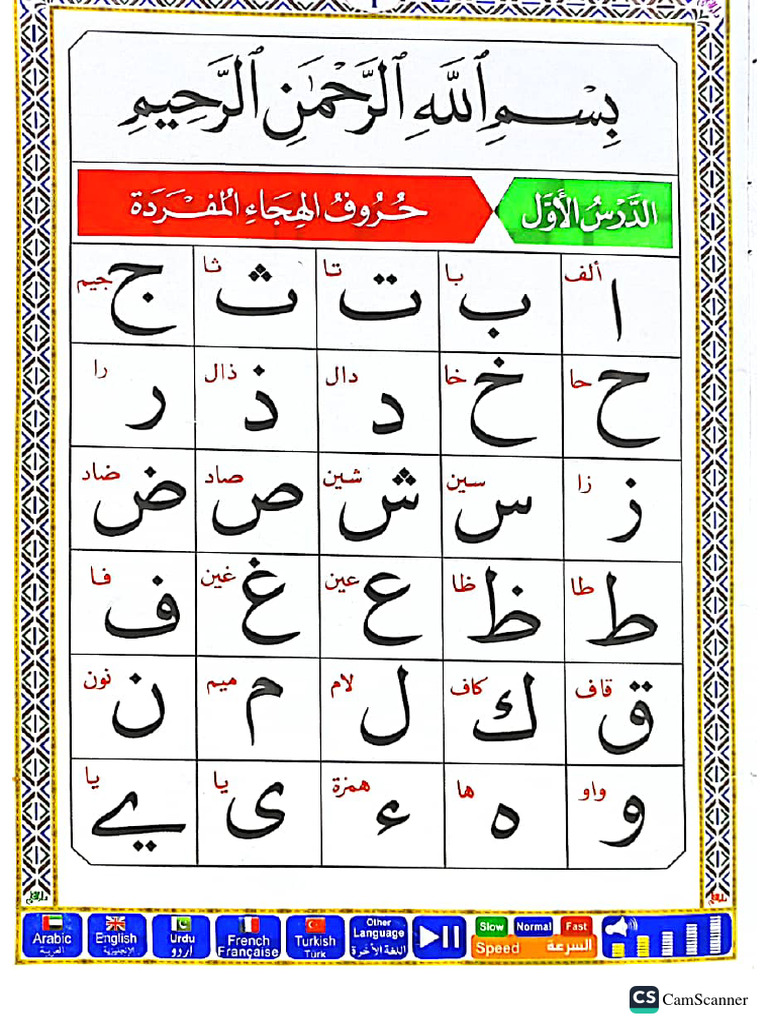 بِسْمِ ٱللَّهِ ٱلرَّحْمَٰنِ ٱلرَّحِيمِ
الدَّرْسُ الْأَوَّل حُرُوفُ الهِجَاءِ المُفْرَدَة
ا ألف ب با ت تا ث ثا ج جيم
ح حا خ خا د دال ذ ذال ر را
ز زا س سين ش شين ص صاد ض ضاد
ط طا ظ ظا ع عين غ غين ف فا
ق قاف ك كاف ل لام م ميم ن نون
و واو ه ها ء همزة ى يا ے يا
Arabic العربية English الإنجليزية Urdu اردو French Française Turkish Türk Other Language اللغة الأخرة Slow Normal Fast Speed السرعة
CS CamScanner